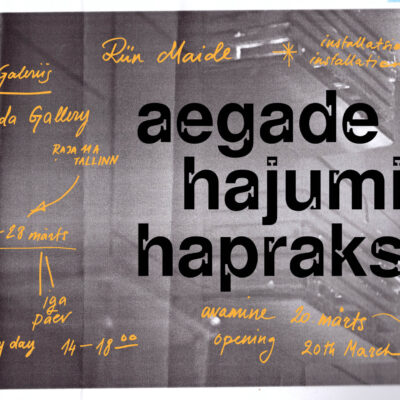 Riin Maide
installatsi
installation
Galeriis
da Gallery
RAJA 11A
TALLINN
-28 märts
iga
päev
y day 14-18 00
aegade
hajumi
hapraks
avamine 20 märts
opening 20th March